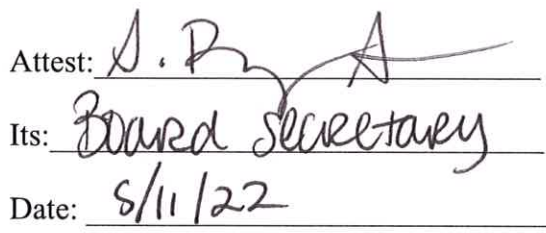 Attest: S.
Its: Board Secretary
Date: 8/11/22